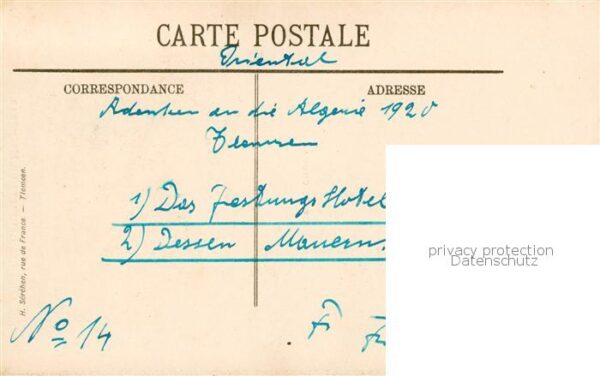 CARTE POSTALE
Oriental
CORRESPONDANCE
ADRESSE
Adenken an die Algerie 1920
Tlemcen
1) Das Festungs Hotel
2) Dessen Mauern
No 14
F
H. Séréhen, rue de France. — Tlemcen.
privacy protection
Datenschutz